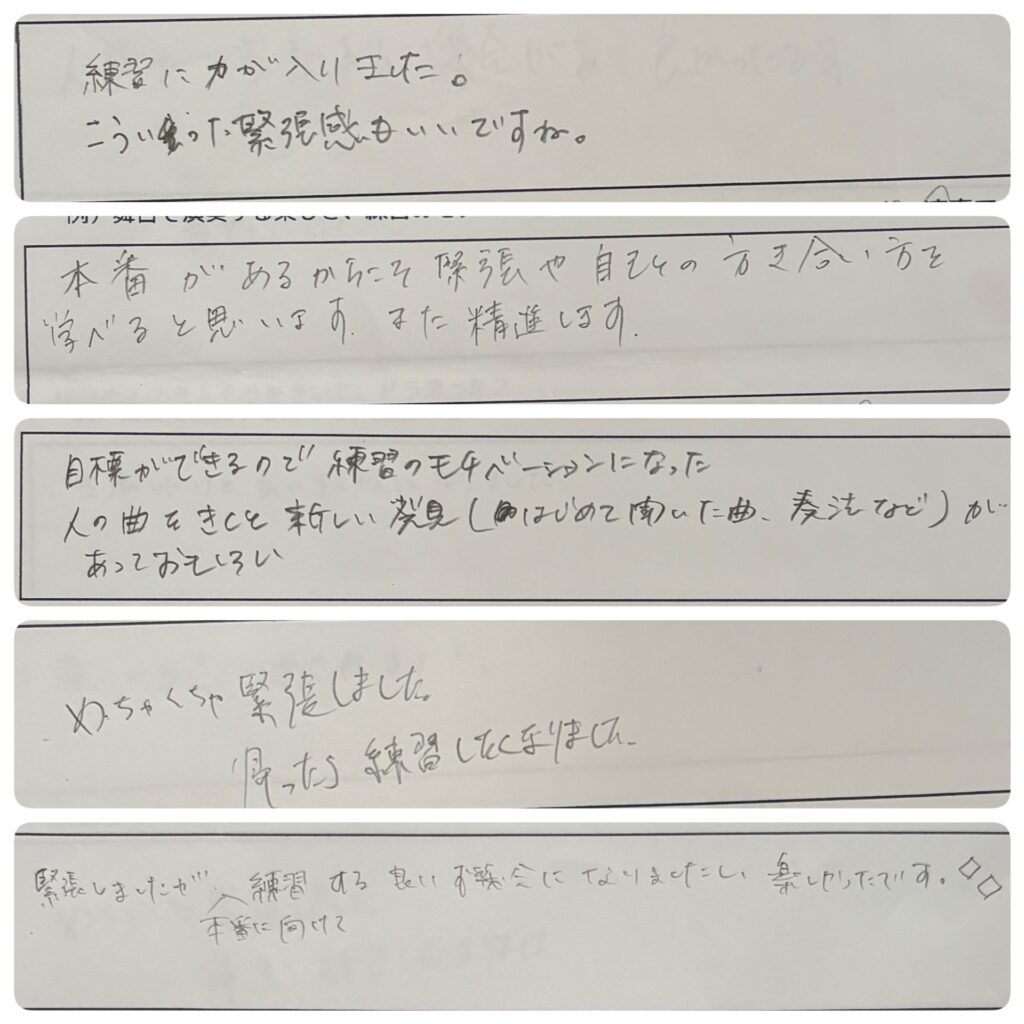 練習に力が入りました。
こういった緊張感もいいですね。
本番があるからこそ緊張や自己との方き合い方を
学べると思います。また精進します。
目標ができるので練習のモチベーションになった
人の曲をきくと新しい発見(はじめて聞いた曲、奏法など)が
あっておもしろい
めちゃくちゃ緊張しました。
帰ったら練習したくなりました。
緊張しましたが、練習する良い機会になりましたし、楽しかったです。
本番に向けて